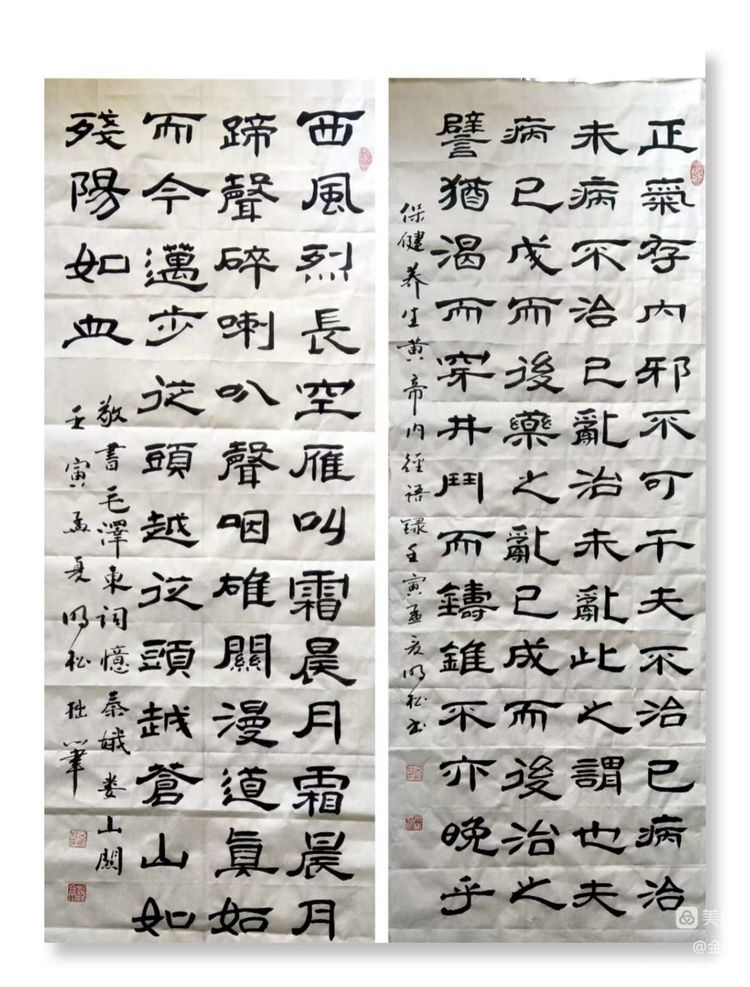 正氣存内邪不可干夫不治已病治
未病不治已亂治未亂此之謂也夫
病已成而後藥之亂已成而後治之
譬猶渴而穿井鬥而鑄錐不亦晚乎
保健养生黄帝内径语録壬寅孟夏明松书
西風烈長空雁叫霜晨月霜晨月
蹄聲碎喇叭聲咽雄關漫道真如
而今邁步從頭越從頭越蒼山如
殘陽如血
敬書毛澤東詞憶秦娥娄山關
壬寅孟夏明松拙筆
美
@金